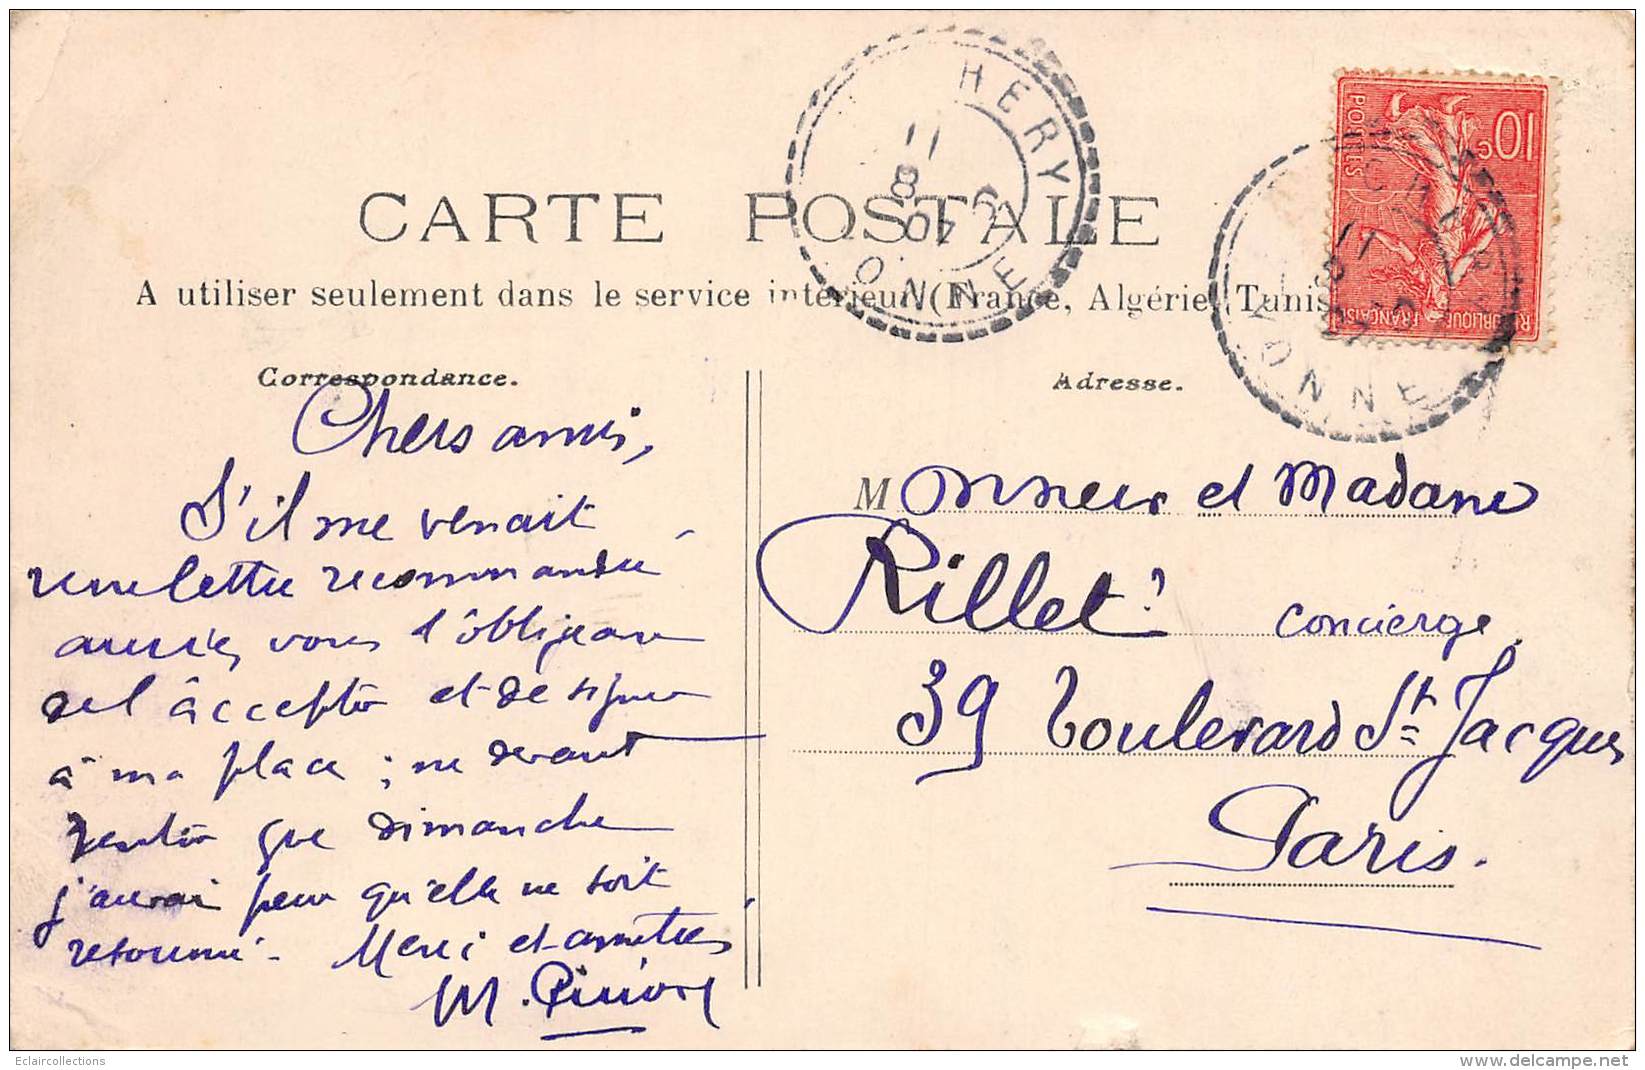 CARTE POSTALE
A utiliser seulement dans le service intérieur (France, Algérie, Tunis
Correspondance.
Adresse.
HERY
11
8
07
YONNE
10c
POSTES
REPUBLIQUE FRANÇAISE
YONNE
Chers amis,
S'il me venait
une lettre recommandée
auriez vous l'obligeance
de l'accepter et de signer
à ma place ; ne devant
rentrer que dimanche
j'aurai peur qu'elle ne soit
retourné - Merci et amitiés
M.
Monsieur et Madame
Rillet concierge
39 boulevard St Jacques
Paris.
Eclaircollections
delcampe.net